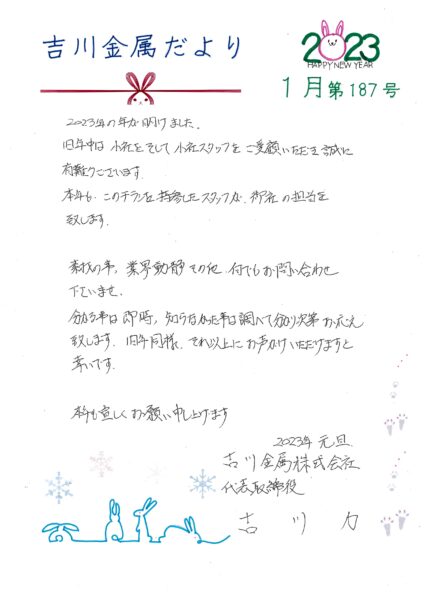 吉川金属だより
2023
HAPPY NEW YEAR
1月第187号
2023年の年が明けました。
旧年中は 小社をそして小社スタッフを ご愛顧いただき 誠に
有難うございます。
本年も、このチラシを持参したスタッフが、御社の担当を
致します。
素材の事、業界動静 その他 何でもお問い合わせ
下さいませ。
分かる事は即時、知らなかった事は調べて分かり次第 お応え
致します。旧年同様、それ以上にお声がけいただけますと
幸いです。
本年も宜しくお願い申し上げます
2023年 元旦
吉川金属株式会社
代表取締役
吉川 力